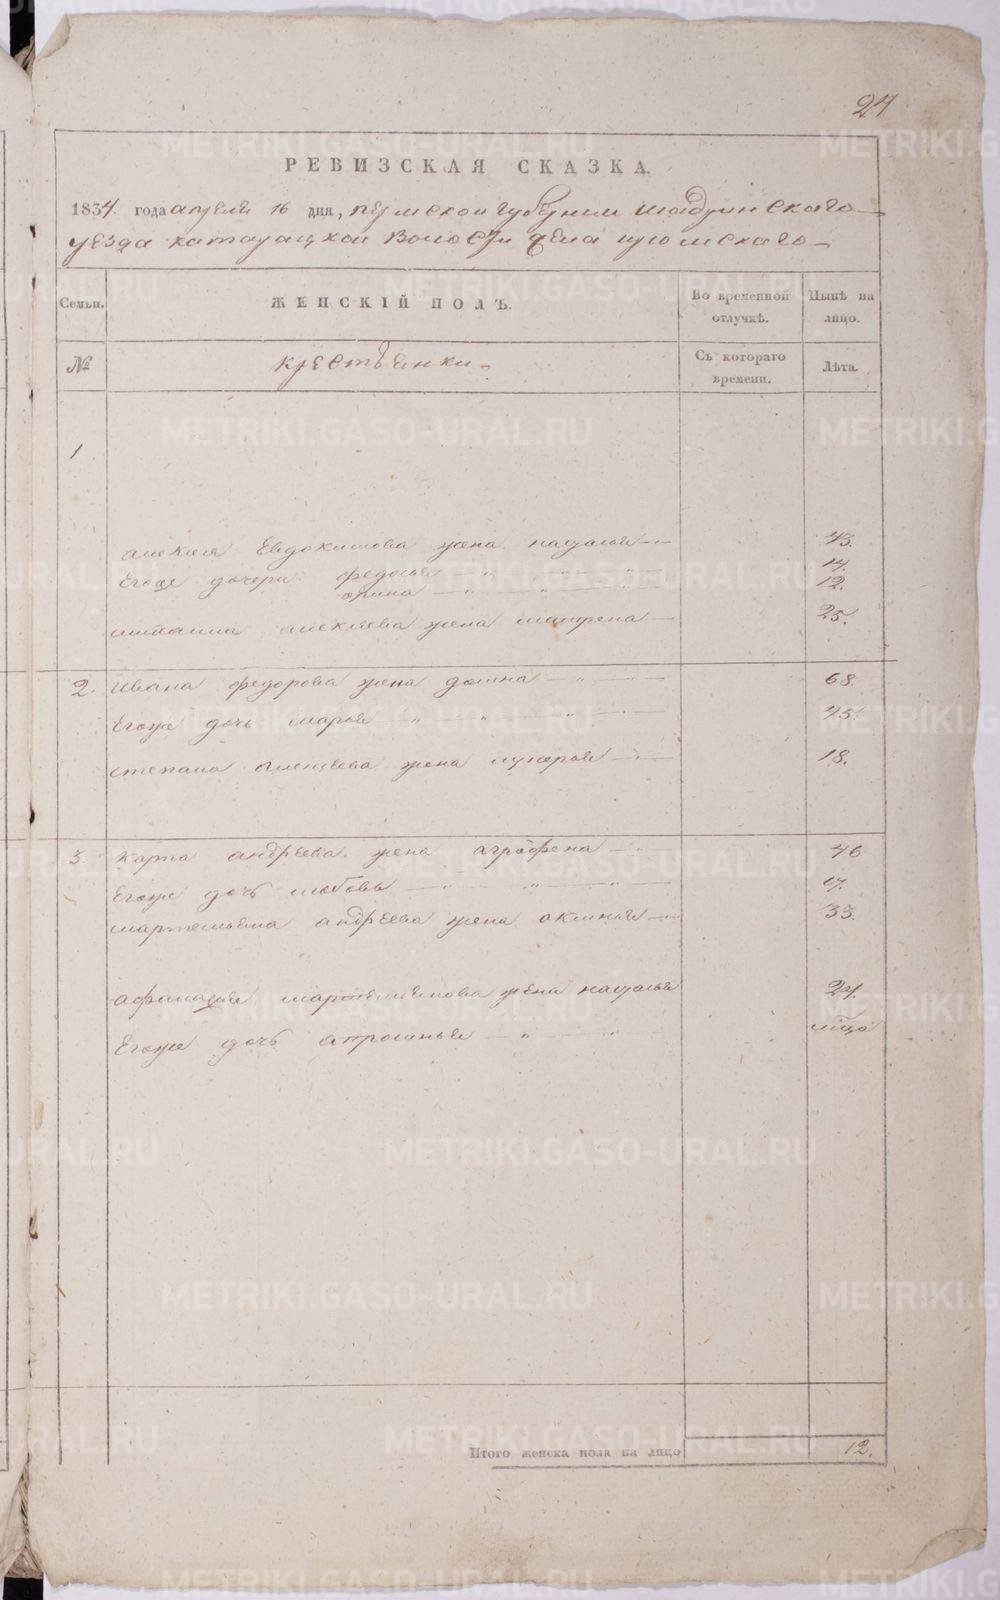 24
РЕВИЗСКАЯ СКАЗКА.
1834 года апреля 16 дня, пермской губернии шадринскаго
уезда катайцкой волости села
Семьи. ЖЕНСКІЙ ПОЛЪ. Во временной отлучкѣ. Нынѣ на лицо.
№ крестьянки Съ котораго времени. Лѣта.
1
алексея Евдокимова жена наталья 43.
Егоже дочери федосья 14.
арина 12.
алексеева жена матрена 25.
2. Ивана федорова жена домна 68.
Егоже дочь марья 45.
степана алексеева жена лукерья 18.
3 карпа андреева жена аграфена 46
Егоже дочь любовь 17.
мартемьяна андреева жена акинья 33.
афанасия мартемьянова жена наталья 24.
Егоже дочь апросинья
Итого женска пола на лицо 12.
METRIKI.GASO-URAL.RU